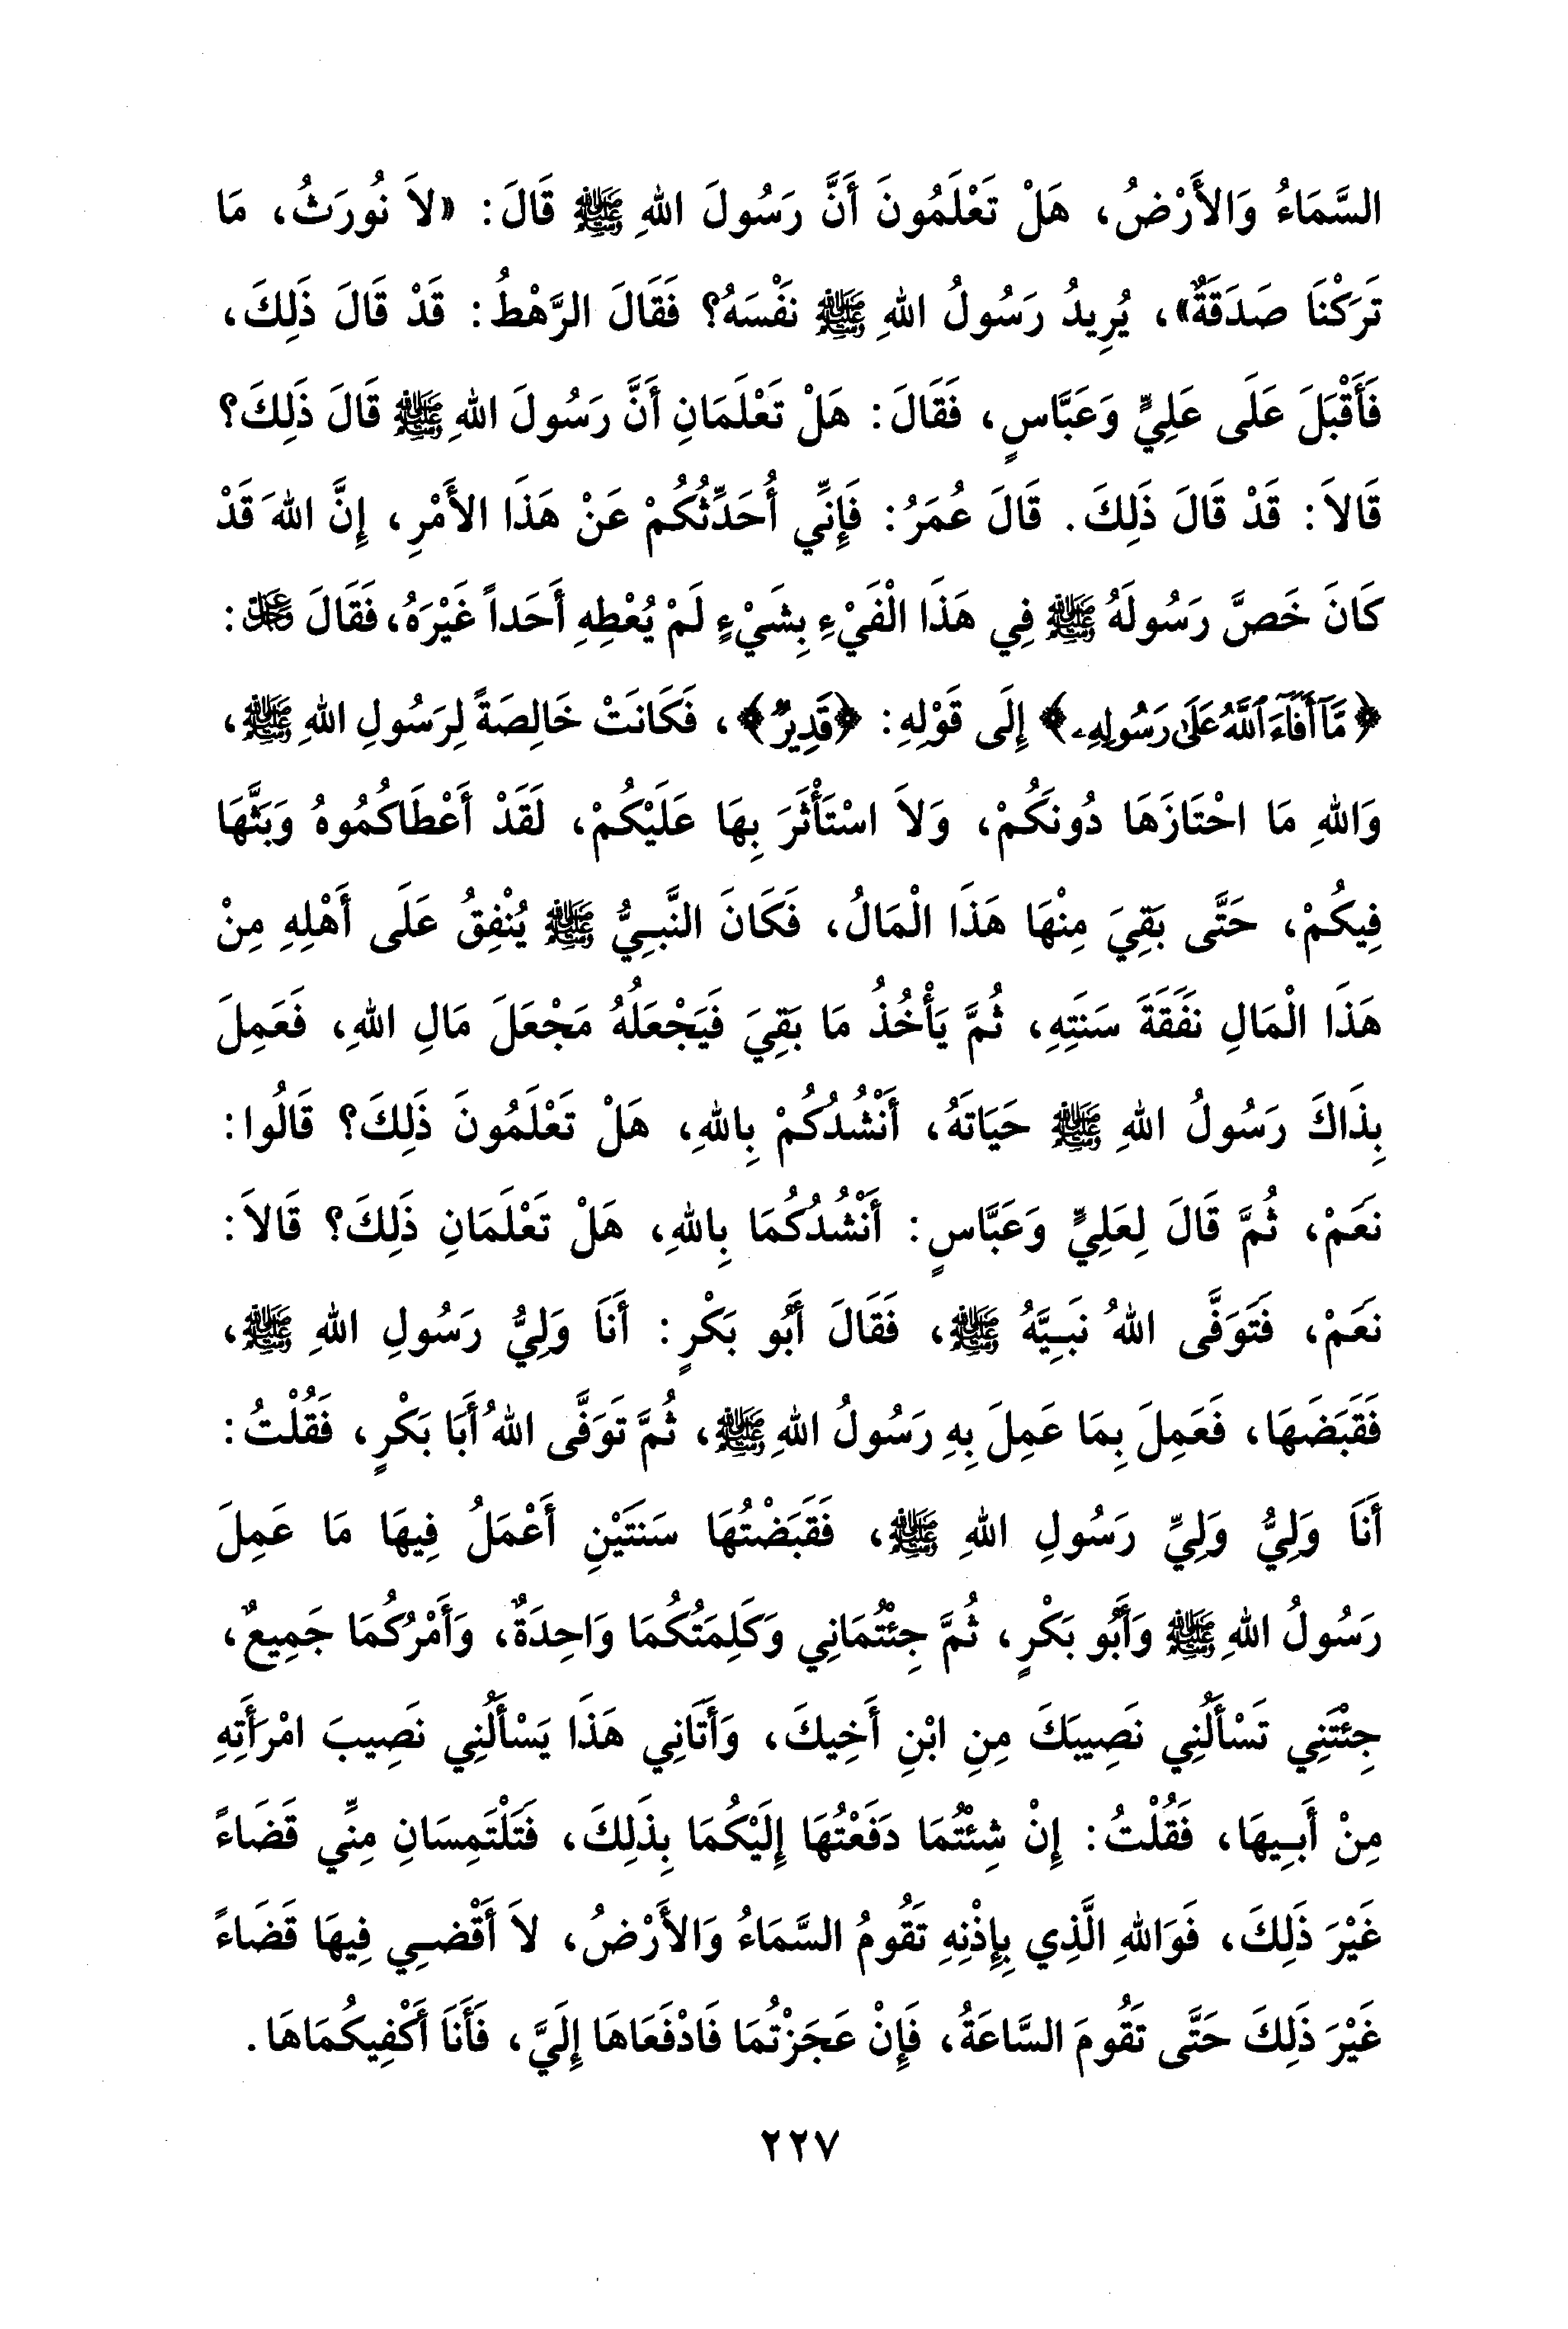 السَّمَاءُ وَالأَرْضُ، هَلْ تَعْلَمُونَ أَنَّ رَسُولَ اللهِ ﷺ قَالَ: «لاَ نُورَثُ، مَا
تَرَكْنَا صَدَقَةٌ»، يُرِيدُ رَسُولُ اللهِ ﷺ نَفْسَهُ؟ فَقَالَ الرَّهْطُ: قَدْ قَالَ ذَلِكَ،
فَأَقْبَلَ عَلَى عَلِيٍّ وَعَبَّاسٍ، فَقَالَ: هَلْ تَعْلَمَانِ أَنَّ رَسُولَ اللهِ ﷺ قَالَ ذَلِكَ؟
قَالاَ: قَدْ قَالَ ذَلِكَ. قَالَ عُمَرُ: فَإِنِّي أُحَدِّثُكُمْ عَنْ هَذَا الأَمْرِ، إِنَّ اللهَ قَدْ
كَانَ خَصَّ رَسُولَهُ ﷺ فِي هَذَا الْفَيْءِ بِشَيْءٍ لَمْ يُعْطِهِ أَحَداً غَيْرَهُ، فَقَالَ عَزَّ وَجَلَّ:
﴿مَّآ أَفَآءَ ٱللَّهُ عَلَىٰ رَسُولِهِۦ﴾ إِلَى قَوْلِهِ: ﴿قَدِيرٌ﴾، فَكَانَتْ خَالِصَةً لِرَسُولِ اللهِ ﷺ،
وَاللهِ مَا احْتَازَهَا دُونَكُمْ، وَلاَ اسْتَأْثَرَ بِهَا عَلَيْكُمْ، لَقَدْ أَعْطَاكُمُوهُ وَبَثَّهَا
فِيكُمْ، حَتَّى بَقِيَ مِنْهَا هَذَا الْمَالُ، فَكَانَ النَّبِيُّ ﷺ يُنْفِقُ عَلَى أَهْلِهِ مِنْ
هَذَا الْمَالِ نَفَقَةَ سَنَتِهِ، ثُمَّ يَأْخُذُ مَا بَقِيَ فَيَجْعَلُهُ مَجْعَلَ مَالِ اللهِ، فَعَمِلَ
بِذَاكَ رَسُولُ اللهِ ﷺ حَيَاتَهُ، أَنْشُدُكُمْ بِاللهِ، هَلْ تَعْلَمُونَ ذَلِكَ؟ قَالُوا:
نَعَمْ، ثُمَّ قَالَ لِعَلِيٍّ وَعَبَّاسٍ: أَنْشُدُكُمَا بِاللهِ، هَلْ تَعْلَمَانِ ذَلِكَ؟ قَالاَ:
نَعَمْ، فَتَوَفَّى اللهُ نَبِيَّهُ ﷺ، فَقَالَ أَبُو بَكْرٍ: أَنَا وَلِيُّ رَسُولِ اللهِ ﷺ،
فَقَبَضَهَا، فَعَمِلَ بِمَا عَمِلَ بِهِ رَسُولُ اللهِ ﷺ، ثُمَّ تَوَفَّى اللهُ أَبَا بَكْرٍ، فَقُلْتُ:
أَنَا وَلِيُّ وَلِيِّ رَسُولِ اللهِ ﷺ، فَقَبَضْتُهَا سَنَتَيْنِ أَعْمَلُ فِيهَا مَا عَمِلَ
رَسُولُ اللهِ ﷺ وَأَبُو بَكْرٍ، ثُمَّ جِئْتُمَانِي وَكَلِمَتُكُمَا وَاحِدَةٌ، وَأَمْرُكُمَا جَمِيعٌ،
جِئْتَنِي تَسْأَلُنِي نَصِيبَكَ مِنِ ابْنِ أَخِيكَ، وَأَتَانِي هَذَا يَسْأَلُنِي نَصِيبَ امْرَأَتِهِ
مِنْ أَبِيهَا، فَقُلْتُ: إِنْ شِئْتُمَا دَفَعْتُهَا إِلَيْكُمَا بِذَلِكَ، فَتَلْتَمِسَانِ مِنِّي قَضَاءً
غَيْرَ ذَلِكَ، فَوَاللهِ الَّذِي بِإِذْنِهِ تَقُومُ السَّمَاءُ وَالأَرْضُ، لاَ أَقْضِي فِيهَا قَضَاءً
غَيْرَ ذَلِكَ حَتَّى تَقُومَ السَّاعَةُ، فَإِنْ عَجَزْتُمَا فَادْفَعَاهَا إِلَيَّ، فَأَنَا أَكْفِيكُمَاهَا.
٢٢٧